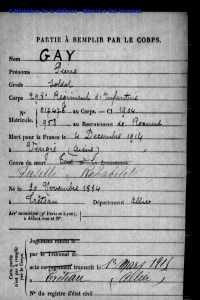 PARTIE À REMPLIR PAR LE CORPS.
Nom GAY
Prénoms Pierre
Grade Soldat
Corps 298e Régiment d'Infanterie
N° 012478 au Corps. — Cl 1904
Matricule. 953 au Recrutement de Roanne
Mort pour la France le 4 Décembre 1914
à Vingré (Aisne)
Genre de mort
Fusillé Réhabilité
Né le 30 Novembre 1884
à Tréteau Département Allier
Arr' municipal (p' Paris et Lyon),
à défaut rue et N°.
Cette partie
n'est pas
à remplir
par le Corps.
Jugement rendu le
par le Tribunal de
acte ou jugement transcrit le 1er Mars 1915
à Tréteau (Allier)
N° du registre d'état civil